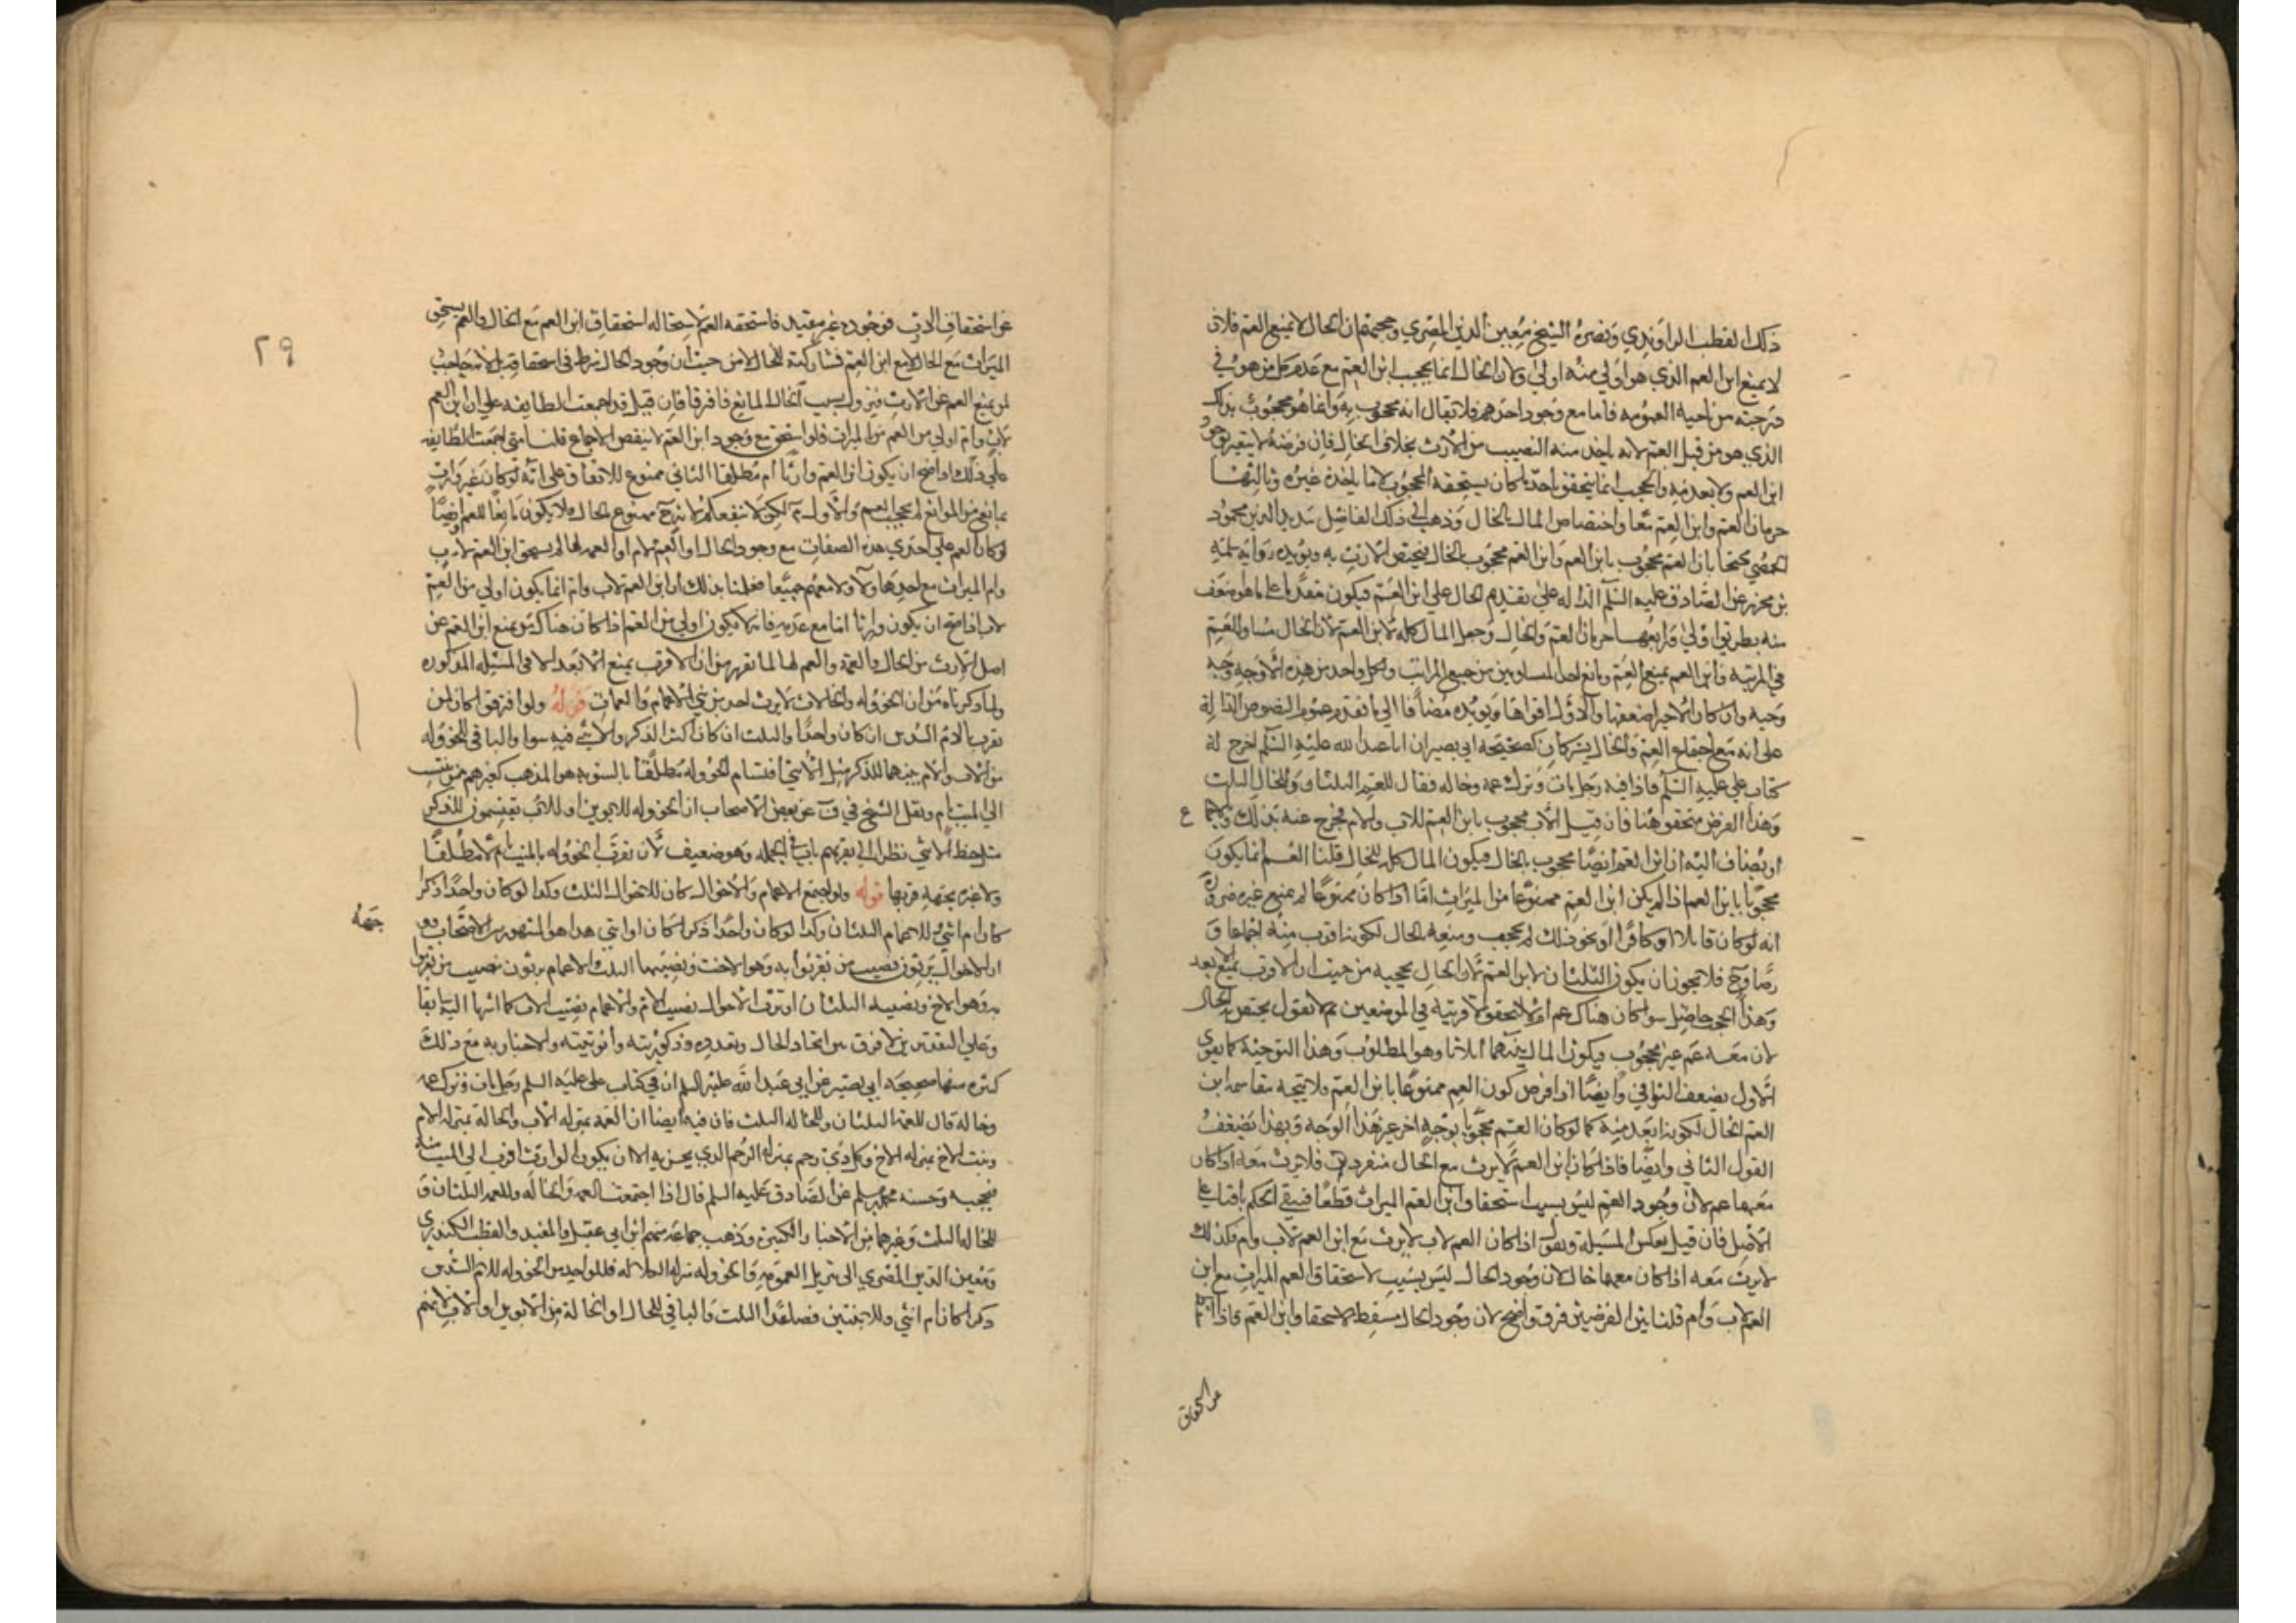 ذلك القطب الراوندي ونصره الشيخ معين الدين المصري وحجتهم ان الخال لا يمنع العم فلان
لا يمنع ابن العم الذي هو اولى منه اولى ولان الخال انما يحجب ابن العم مع عدم كل من هو في
درجته من ناحية العمومه فاما مع وجود احدهم فلا يقال انه محجوب به وانما هو محجوب بذلك
الذي هو من قبل العم لانه ياخذ منه النصيب من الارث بخلاف الخال فان فرضه لا يتغير بوجود
ابن العم ولا بعدمه والحجب انما يتحقق باخذ ما كان يستحقه المحجوب لا ما ياخذه غيره وثالثها
حرمان العم وابن العم معا واختصاص المال بالخال وذهب الى ذلك الفاضل سديد الدين محمود
الحمصي محتجا بان العم محجوب بابن العم وابن العم محجوب بالخال فيختص الارث به ويؤيده رواية سلمة
بن محرز عن الصادق عليه السلام الداله على تقديم الخال على ابن العم فيكون مقدما على ما هو اضعف
منه بطريق اولى ورابعها حرمان العم والخال وجعل المال كله لابن العم لان الخال مساو للعم
في المرتبه وابن العم يمنع العم ومانع احد المتساويين من جميع المراتب ولكل واحد من هذه الاوجه وجه
وجيه وان كان الاخير اضعفها والاول اقواها ويؤيده مضافا الى ما تقدم عموم النصوص الدالة
على انه مع اجتماع العم والخال يشتركان كصحيحة ابي بصير ان ابا عبد الله عليه السلام اخرج له
كتاب علي عليه السلام فاذا فيه رجل مات وترك عمه وخاله فقال للعم الثلثان وللخال الثلث
وهذا الفرض متحقق هنا فان قيل الاب محجوب بابن العم للاب والام فخرج عنه بذلك
او يضاف اليه ان ابن العم ايضا محجوب بالخال فيكون المال كله للخال قلنا العم انما يكون
محجوبا بابن العم اذا لم يكن ابن العم ممنوعا من الميراث اما اذا كان ممنوعا لم يمنع غيره ضرورة
انه لو كان قاتلا او كافرا او نحو ذلك لم يحجب ومنعه بالخال لكونه اقرب منه اجماعا و
نصا وح فلا يجوز ان يكون الثلثان لابن العم لان الخال يحجبه من حيث ان الاقرب يمنع الابعد
وهذا الحجب حاصل سوا كان هناك عم ام لا لتحقق الاقربية في الموضعين ثم لا نقول يختص بالخال
لان معه عم غير محجوب فيكون المال بينهما اثلاثا وهو المطلوب وهذا التوجيه كما يقوي
الاول يضعف البواقي وايضا اذا فرض كون العم ممنوعا بابن العم فلا يتجه مقاسمه ابن
العم الخال لكونه ابعد منه كما لو كان العم محجوبا بوجه اخر غير هذا الوجه وبهذا يضعف
القول الثاني وايضا فاذا كان ابن العم لا يرث مع الخال منفردا فلا يرث معه اذا كان
معهما عم لان وجود العم ليس بسبب استحقاق ابن العم الميراث قطعا فيبقى الحكم باقيا على
الاصل فان قيل نعكس المسيلة ونقول اذا كان العم لاب لا يرث مع ابن العم لاب وام فكذلك
لا يرث معه اذا كان معهما خال لان وجود الخال ليس بسبب لاستحقاق العم الميراث مع ابن
العم لاب وام قلنا بين الفرضين فرق واضح لان وجود الخال مسقط لاستحقاق ابن العم فاذا
عن استحقاق الارث فوجوده غير مقيد فاستحقه العم لاستحاله استحقاق ابن العم مع الخال والعم يستحق
الميراث مع الخال لا مع ابن العم فمشاركته للخال لا من حيث ان وجود الخال شرط في استحقاقه بل لانه
لم يمنع العم عن الارث فيزول بسبب الخال المانع فافترقا فان قيل قد اجمعت الطايفه على ان ابن العم
لاب وام اولى من العم من الميراث فلو استحق مع وجود ابن العم لا ينقض الاجماع قلنا متى اجمعت الطايفه
على ذلك اذا صح ان يكون ابن العم وارثا ام مطلقا الثاني ممنوع للاتفاق على انه لو كان غير وارث
بمانع من الموانع لم يحجب العم والاول مم لكن لا ينفعكم لانه ح ممنوع بالخال فلا يكون مانعا للعم ايضا
لو كان العم على احدى هذه الصفات مع وجود الخال او العم للام او العمه لهما لم يستحق ابن العم لاب
وام الميراث مع احدها ولا معهم جميعا فعلمنا بذلك ان ابن العم لاب وام انما يكون اولى من العم
لاب اذا صح ان يكون وارثا اما مع عدمه فانه لا يكون اولى من العم اذا كان هناك من يمنع ابن العم عن
اصل الارث من الخال والعمة والعم لها لما تقرر من ان الاقرب يمنع الابعد الا في المسيله المذكوره
ولما ذكرناه من ان الخؤوله والخالات لا يرث احد من بني الاعمام والعمات قوله ولو افترقوا كان لمن
تقرب بالام السدس ان كان واحدا والثلث ان كان اكثر الذكر والانثى فيه سوا والباقي للخؤوله
من الاب والام بينهما للذكر مثل الانثى اقتسام الخؤوله مطلقا بالسويه هو المذهب كغيرهم ممن ينتسب
الى الميت بام ونقل الشيخ في ف عن بعض الاصحاب ان الخؤوله للابوين او للاب يقتسمون للذكر
مثل حظ الانثى نظرا الى تقربهم باب في الجمله وهو ضعيف لان تقرب الخؤوله بالميت بام مطلقا
ولا عبره بجهة قربها قوله ولو اجتمع الاعمام والاخوال كان للاخوال الثلث وكذا لو كان واحدا ذكرا
كان ام انثى وللاعمام الثلثان وكذا لو كان واحدا ذكرا كان او انثى هذا هو المشهور بين الاصحاب
ان الاخوال يرثون نصيب من تقربوا به وهو الاخت ونصيبها الثلث والاعمام يرثون نصيب من تقربوا
به وهو الاخ ونصيبه الثلثان او يرث الاخوال نصيب الام والاعمام نصيب الاب كما
وعلى التقديرين لا فرق بين اتحاد الخال وتعدده وذكوريته وانوثيته والاخبار به مع ذلك
كثيره منها صحيحه ابي بصير عن ابي عبد الله عليه السلم ان في كتاب علي عليه السلم رجل مات وترك عمه
وخاله قال للعم الثلثان وللخاله الثلث فان فيه ايضا ان العمه بمنزله الاب والخالة بمنزله الام
وبنت الاخ بمنزله الاخ وكل ذي رحم بمنزلة الرحم الذي يجر به الا ان يكون الوارث اقرب الى الميت منه
فيحجبه وحسنه محمد بن مسلم عن الصادق عليه السلم قال اذا اجتمعت العمه والخاله فللعمه الثلثان و
للخاله الثلث وغيرهما من الاخبار الكثيرة وذهب جماعة منهم ابن ابي عقيل والمفيد والقطب الكيدري
ومعين الدين المصري الى تنزيل العمومه والخؤوله منزله الكلاله فللواحد من الخؤوله للام السدس
ذكرا كان ام انثى وللاثنتين فصاعدا الثلث والباقي للخال او الخالة من الابوين او الاب
جهة
ع
٢٩